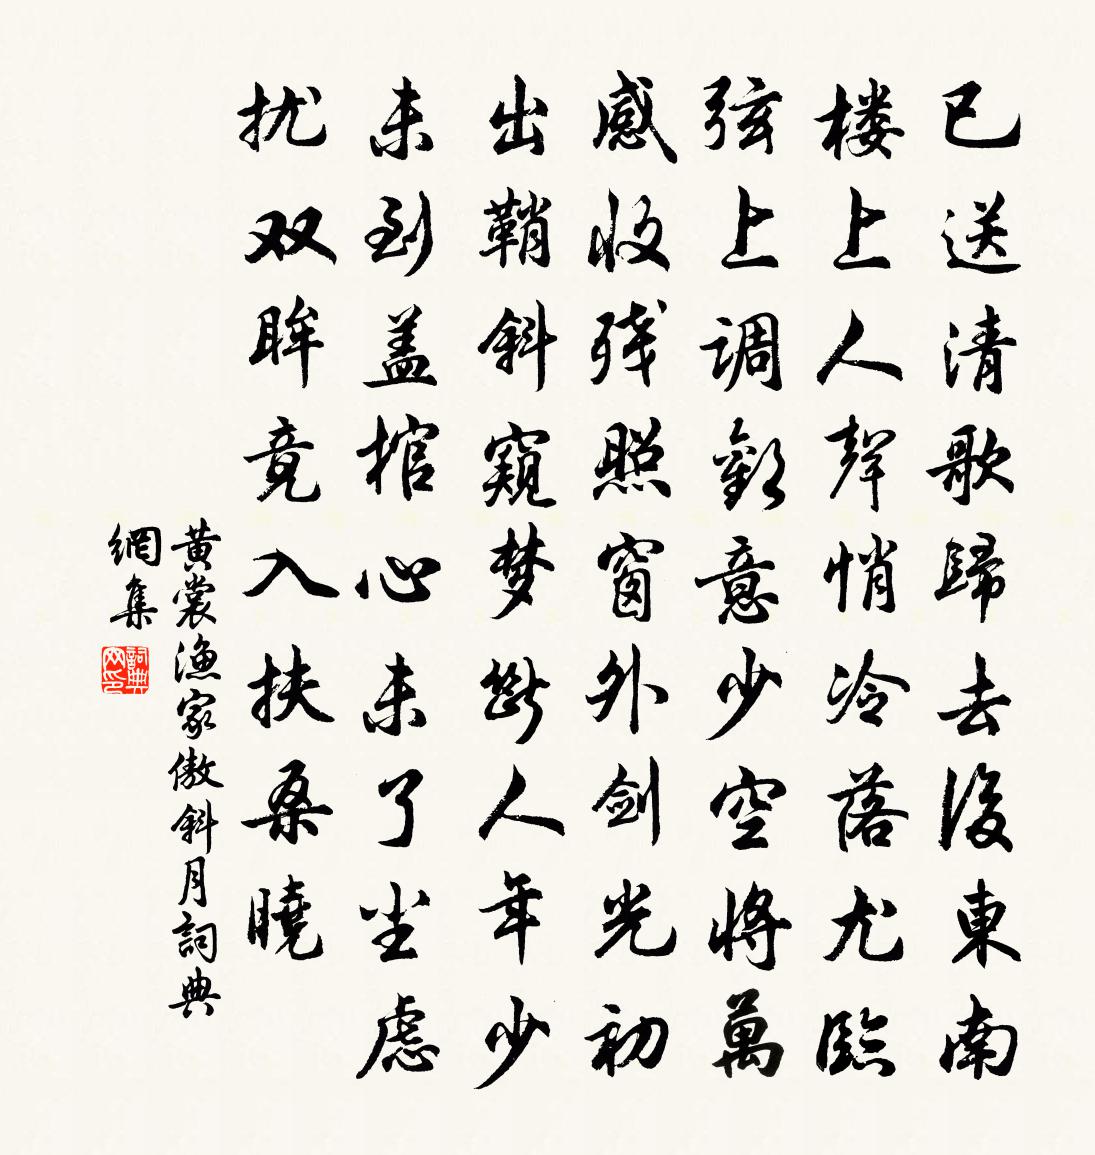 已送清歌歸去後東南
楼上人聲悄冷落尤臨
弦上调歡意少空将萬
感收残照窗外剑光初
出鞘斜窺梦斷人年少
未到盖棺心未了尘慮
扰双眸竟入扶桑曉
黄裳漁家傲斜月詞典
網集
詞典网印